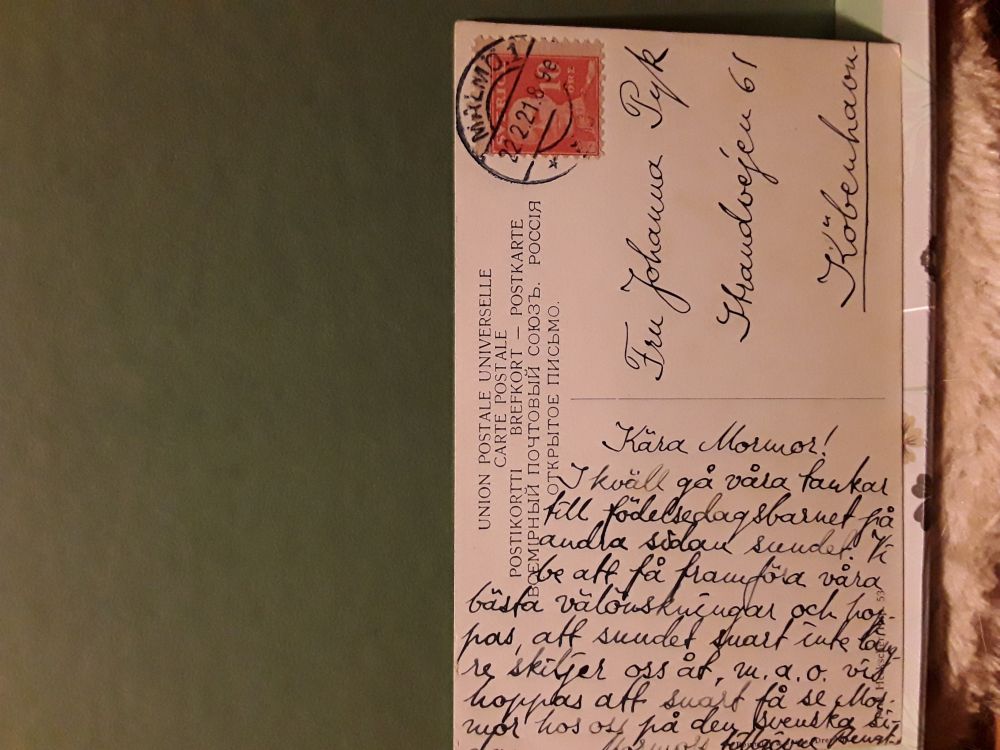 MALMÖ 1
22.2.21.8
SVERIGE
10
ÖRE
UNION POSTALE UNIVERSELLE
CARTE POSTALE
POSTIKORTTI BREFKORT — POSTKARTE
ВСЕМІРНЫЙ ПОЧТОВЫЙ СОЮЗЪ. РОССІЯ
ОТКРЫТОЕ ПИСЬМО.
Fru Johanna Pyk
Strandvejen 61
Köbenhavn
Kära Mormor!
I kväll gå våra tankar
till födelsedagsbarnet på
andra sidan sundet. Vi
be att få framföra våra
bästa välönskningar och hop-
pas, att sundet snart inte läng-
re skiljer oss åt, m.a.o. vi
hoppas att snart få se Mor-
mor hos oss på den svenska si-
Mormors tillgivne Bengt